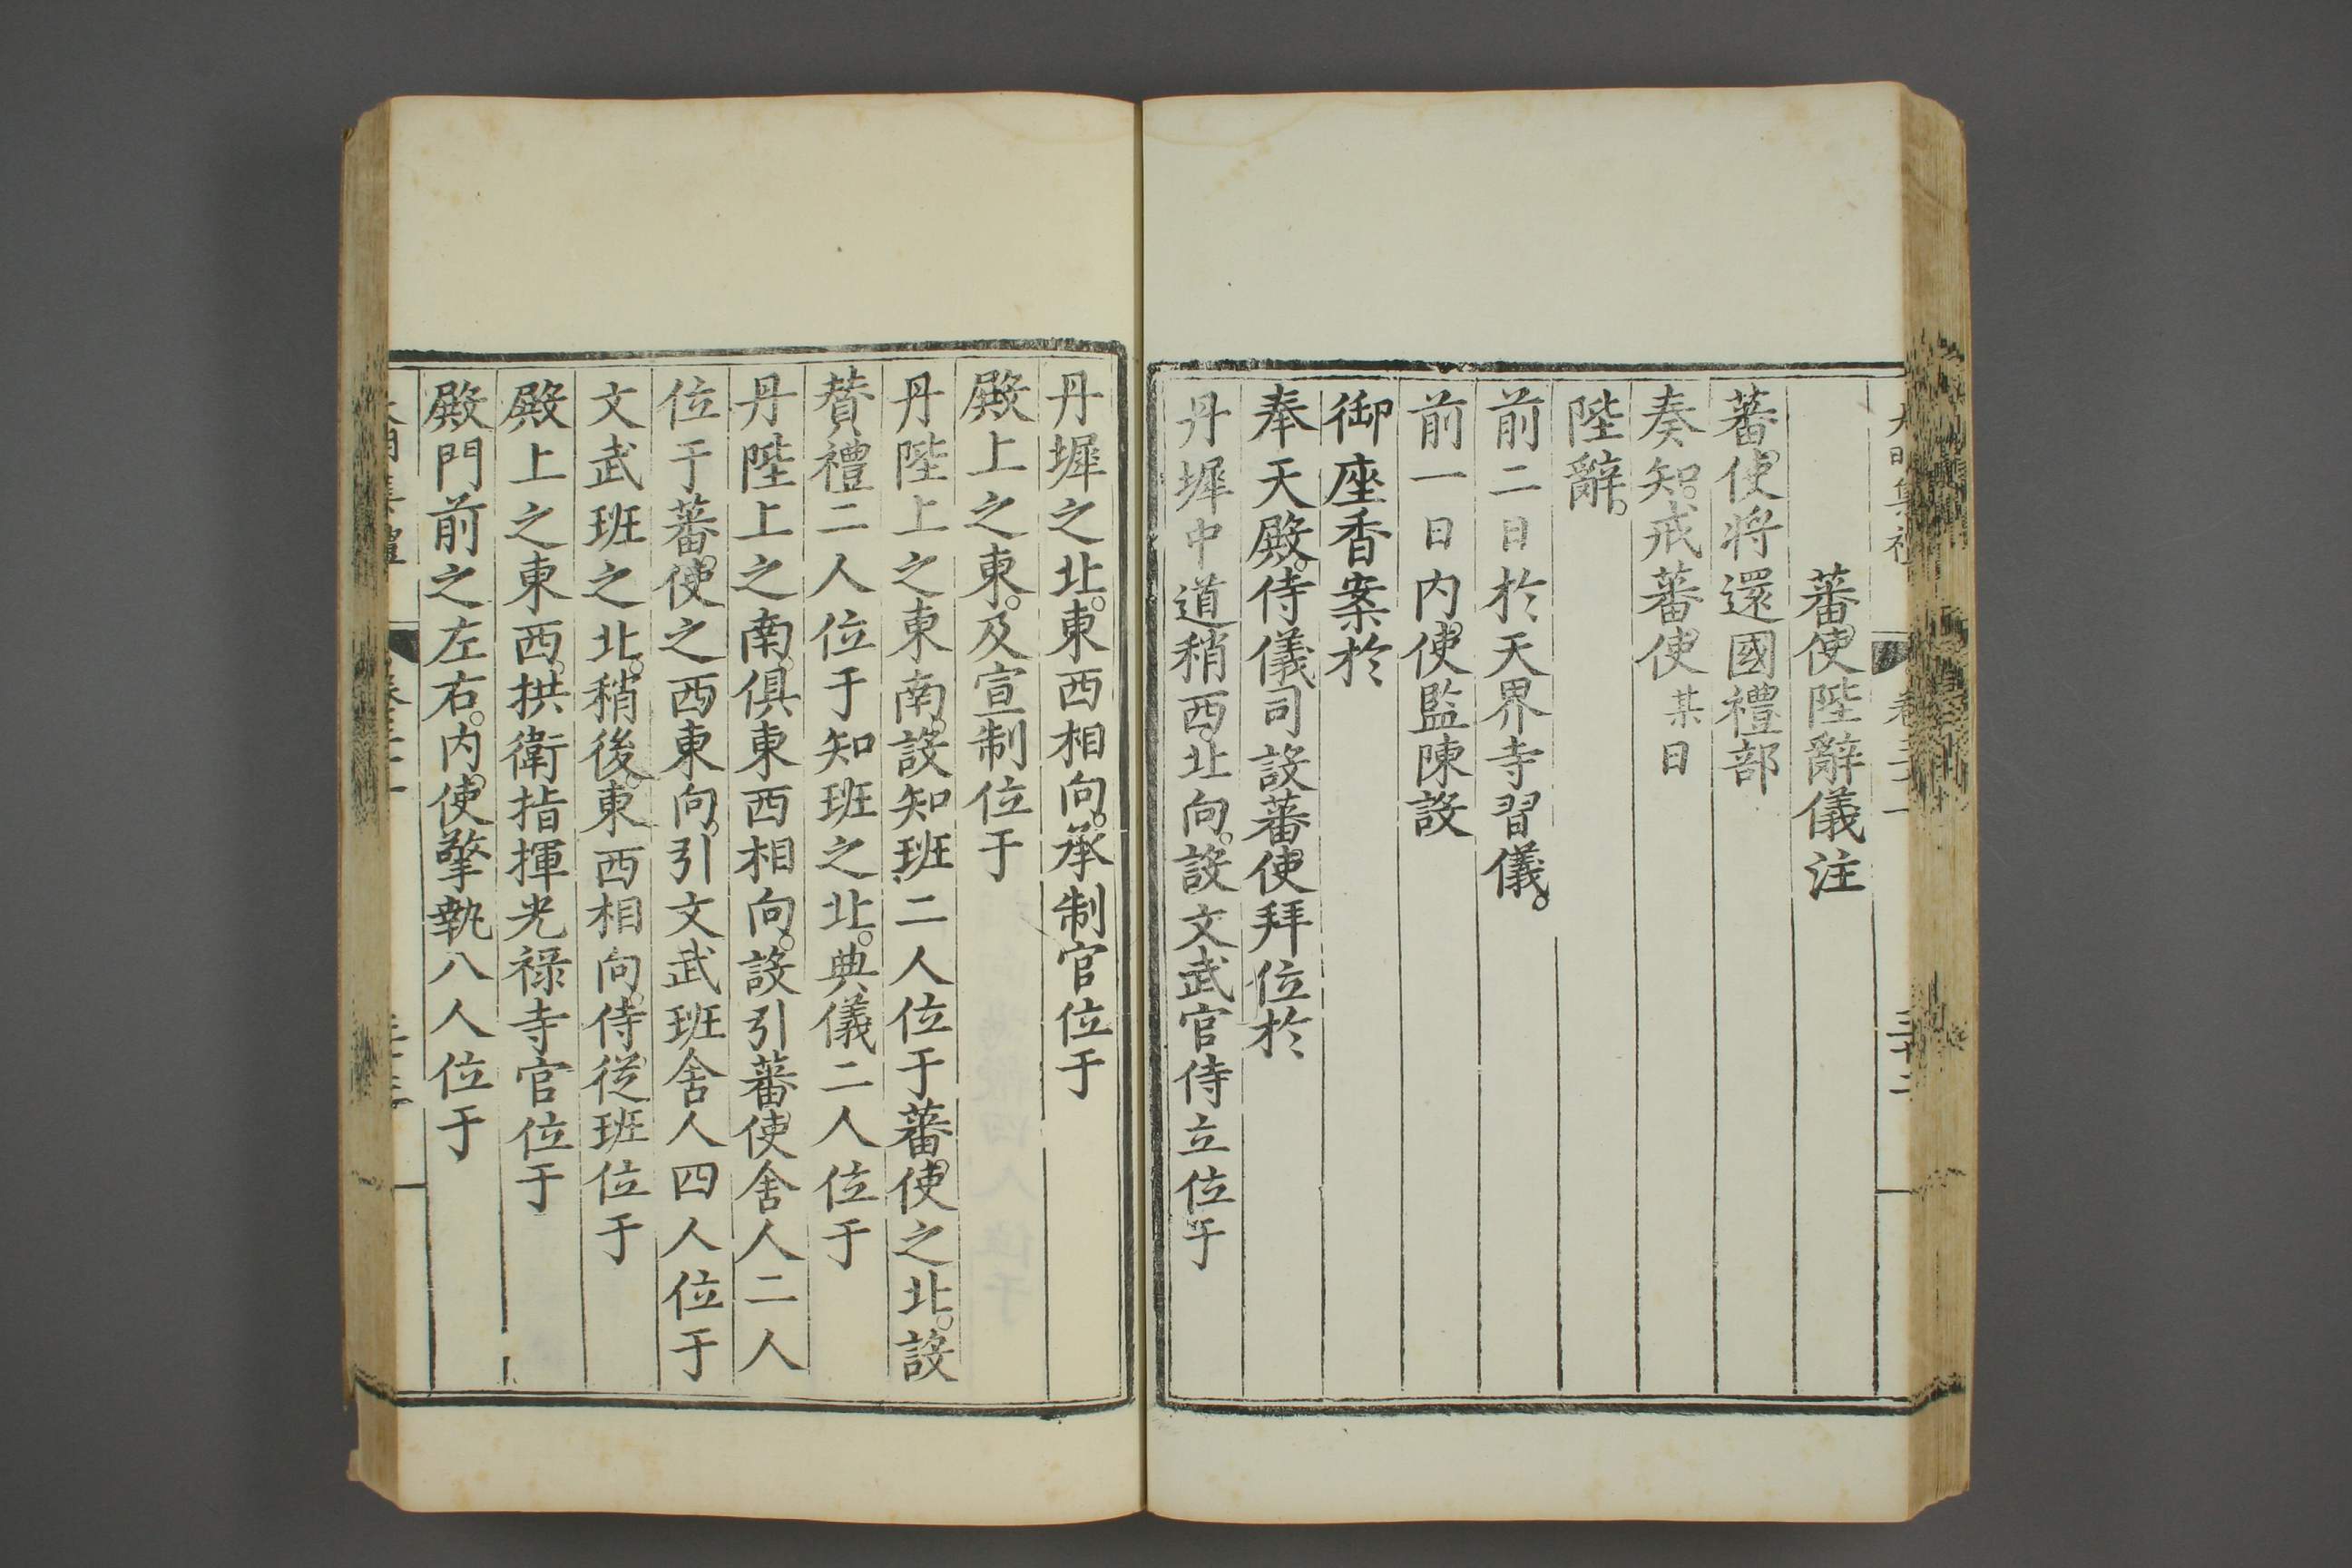 蕃使陛辭儀注
蕃使將還國禮部
奏知。戒蕃使某日
陛辭。
前二日於天界寺習儀。
前一日内使監陳設
御座香案於
奉天殿。侍儀司設蕃使拜位於
丹墀中道稍西。北向。設文武官侍立位于
丹墀之北。東西相向。承制官位于
殿上之東。及宣制位于
丹陛上之東南。設知班二人位于蕃使之北。設
賛禮二人位于知班之北。典儀二人位于
丹陛上之南。俱東西相向。設引蕃使舍人二人
位于蕃使之西東向。引文武班舍人四人位于
文武班之北。稍後。東西相向。侍從班位于
殿上之東西。拱衛指揮光禄寺官位于
殿門前之左右。内使擎執八人位于